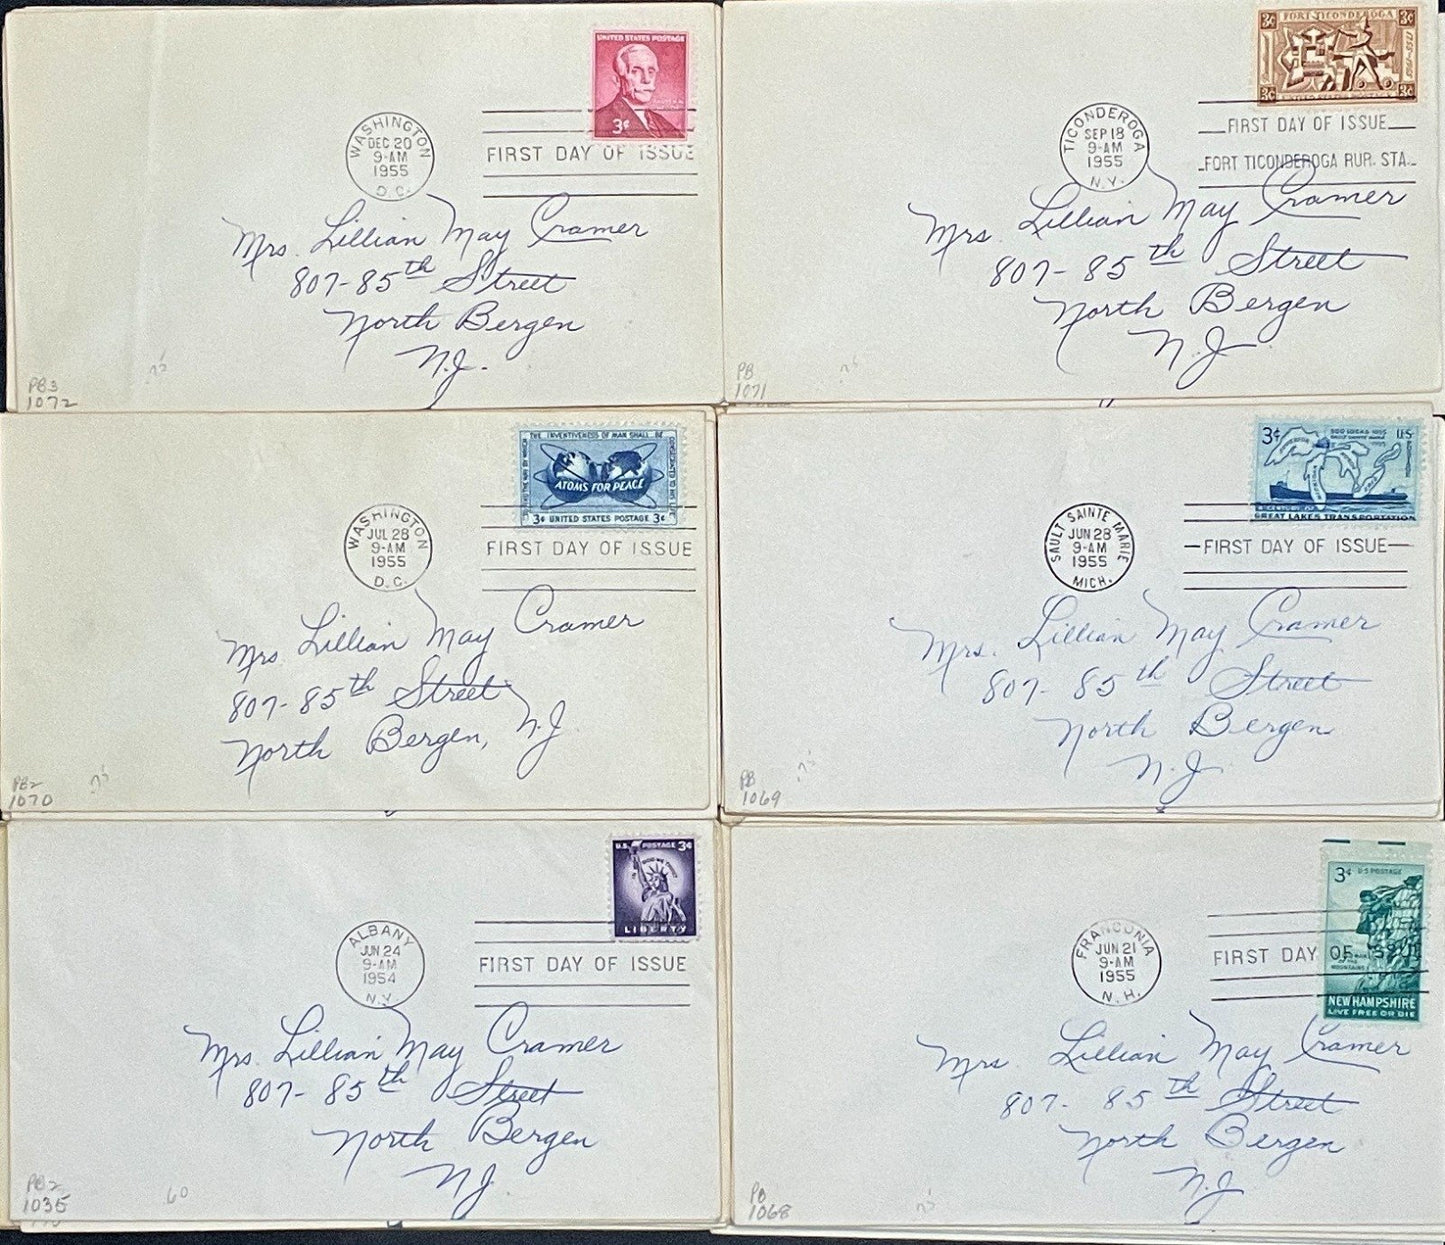 UNITED STATES POSTAGE
3¢
WASHINGTON
DEC 20
9-AM
1955
D.C.
FIRST DAY OF ISSUE
Mrs. Lillian May Cramer
807-85th Street
North Bergen
N.J.
PB3
1072
3¢ FORT TICONDEROGA 3¢
1755-1955
3¢ UNITED STATES POSTAGE 3¢
TICONDEROGA
SEP 18
9-AM
1955
N.Y.
FIRST DAY OF ISSUE
FORT TICONDEROGA RUR. STA.
Mrs. Lillian May Cramer
807-85th Street
North Bergen
N.J.
PB
1071
THE INVENTIVENESS OF MAN SHALL BE
CONSECRATED TO HIS LIFE
ATOMS FOR PEACE
3¢ UNITED STATES POSTAGE 3¢
WASHINGTON
JUL 28
9-AM
1955
D.C.
FIRST DAY OF ISSUE
Mrs. Lillian May Cramer
807-85th Street
North Bergen, N.J.
PB2
1070
3¢ SOO LOCKS 1955 U.S.
GREAT LAKES TRANSPORTATION
SAULT SAINTE MARIE
JUN 28
9-AM
1955
MICH.
FIRST DAY OF ISSUE
Mrs. Lillian May Cramer
807-85th Street
North Bergen
N.J.
PB
1069
U.S. POSTAGE 3¢
IN GOD WE TRUST
LIBERTY
ALBANY
JUN 24
9-AM
1954
N.Y.
FIRST DAY OF ISSUE
Mrs. Lillian May Cramer
807-85th Street
North Bergen
NJ
PB2
1035
60
3¢ U.S. POSTAGE
NEW HAMPSHIRE
LIVE FREE OR DIE
FRANCONIA
JUN 21
9-AM
1955
N.H.
FIRST DAY OF ISSUE
Mrs. Lillian May Cramer
807-85th Street
North Bergen
N.J.
PB
1068